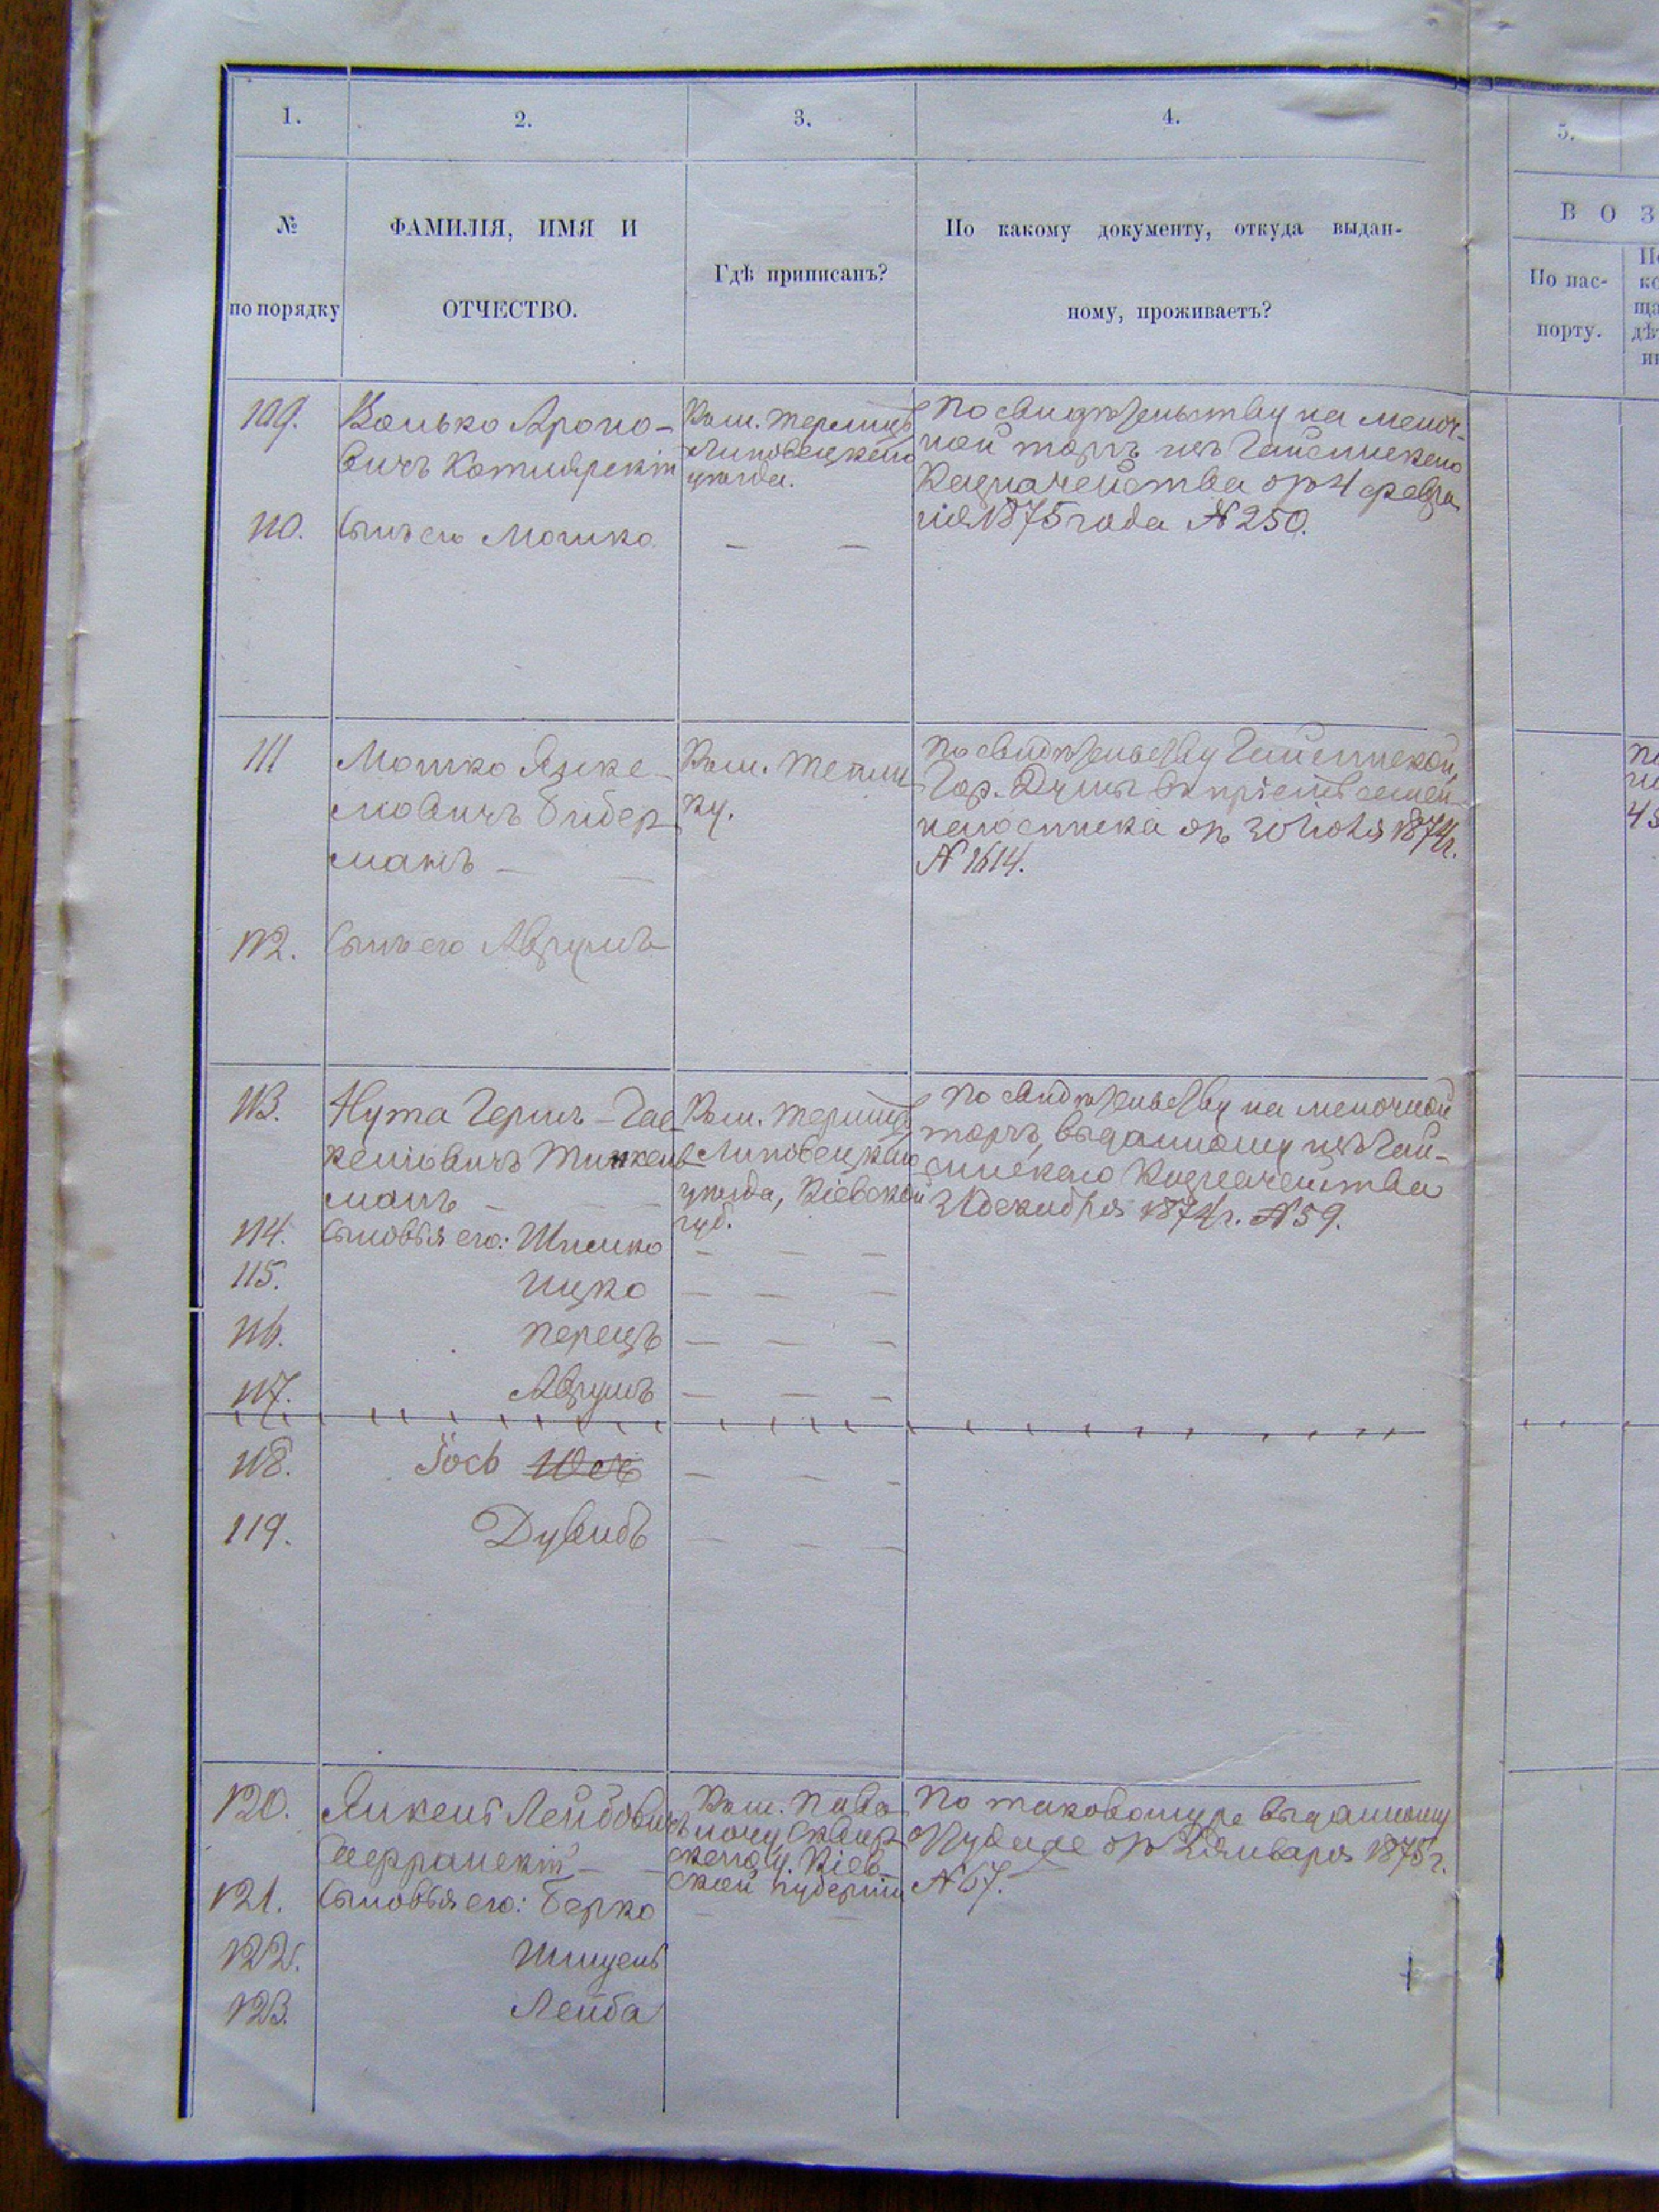 1. 2. 3. 4. 5.
№
по порядку
ФАМИЛІЯ, ИМЯ И
ОТЧЕСТВО.
Гдѣ приписанъ?
По какому документу, откуда выдан-
ному, проживаетъ?
В О З
По пас-
порту.
109.
Волько Ароно-
вичъ Котлярскій
Къ м.
Липовецкаго
уѣзда.
По свидѣтельству на мелоч-
ной торгъ изъ Гайсинскаго
Казначейства отъ 4 февра
ля 1875 года № 250.
110. Сынъ его Мошко — —
111
Мошко Янке-
левичъ Бибер
манъ — —
Къ м. Тепли
ку.
По свидѣтельству Гайсинской
Гор. Думы
отъ 30 Іюля 1874 г.
№ 1614.
112. Сынъ его Аврумъ
113.
Нута Гершъ-Гас
келіовичъ Тинкель
манъ — —
Къ м.
Липовецкаго
уѣзда, Кіевской
губ.
По свидѣтельству на мелочной
торгъ, выданному изъ Гай-
синскаго Казначейства
31 декабря 1874 г. № 59.
114. Сыновья его: Шлемко — — —
115. Ицко — — —
116. Перецъ — — —
117. Аврумъ — — —
118. Іось — — —
119. Дувидъ — — —
120.
Янкель Лейбовичъ
Къ м. Паво
лочу, Сквир
скаго у. Кіев-
ской губерніи
По таковому же выданному
отъ 2 января 1875 г.
№ 67.
121. Сыновья его: Берко — —
122.
123. Лейба